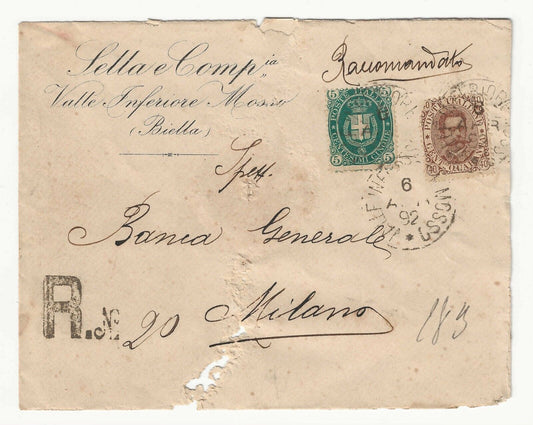 Sella e Comp.ia
Valle Inferiore Mosso
(Biella)
Raccomandata
5 POSTE ITALIANE 5
5 CENTESIMI CINQUE 5
POSTE
6
92
MOSSO
Spett.
Banca Generale
Milano
R. No 20
183